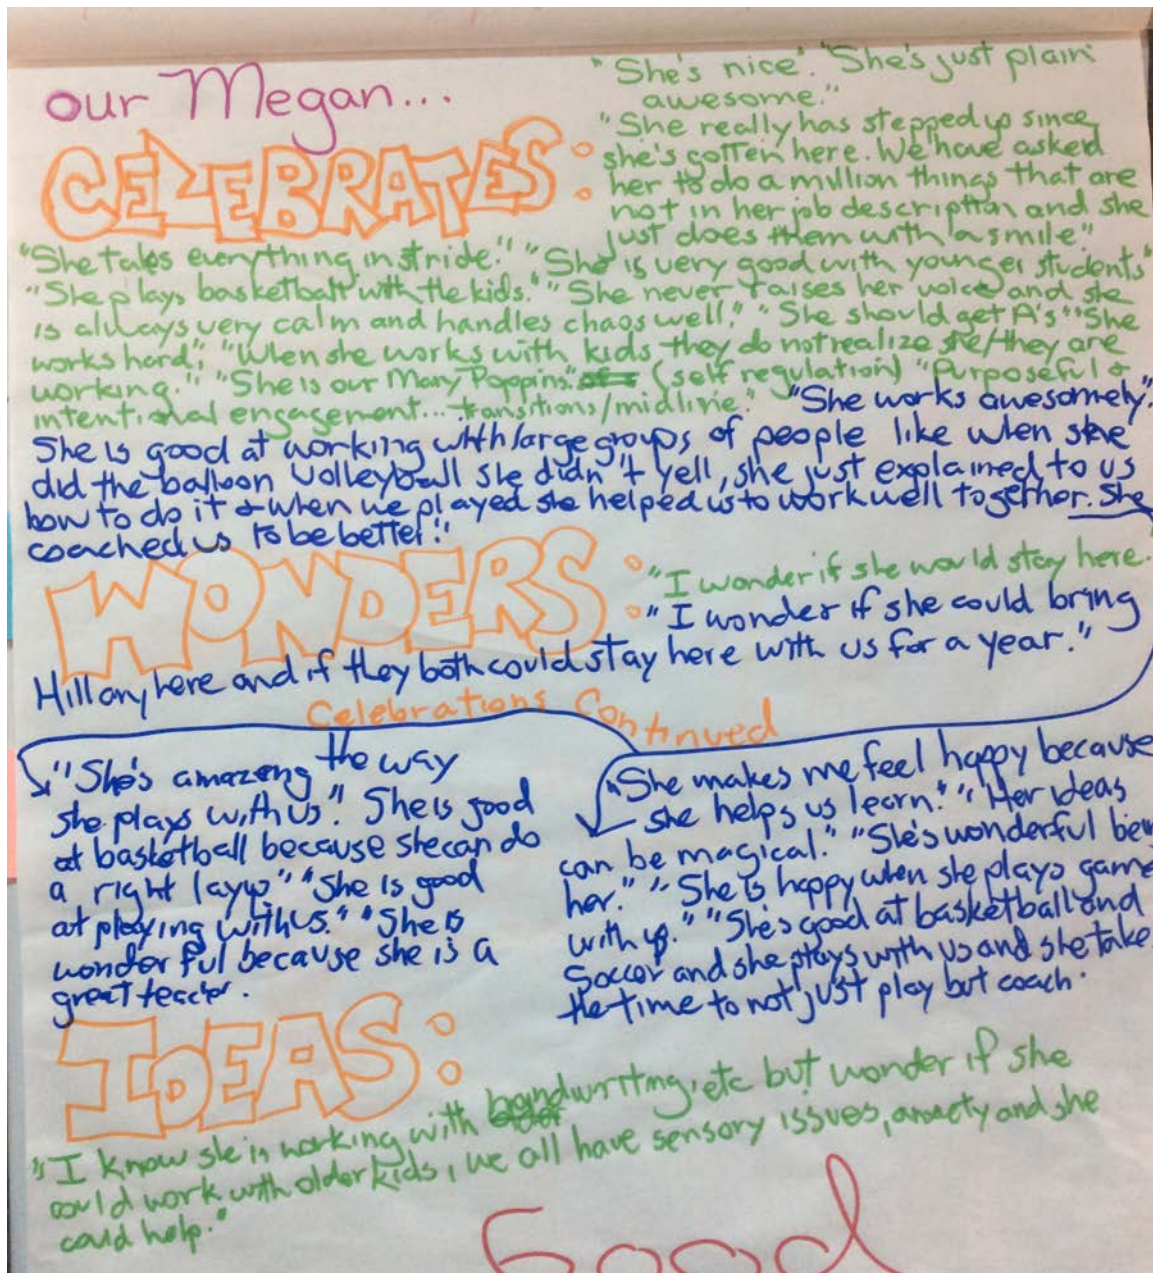 our Megan...
CELEBRATES:
"She's nice". "She's just plain
awesome."
"She really has stepped up since
she's gotten here. We have asked
her to do a million things that are
not in her job description and she
just does them with a smile."
"She takes everything in stride." "She is very good with younger students"
"She plays basketball with the kids." "She never raises her voice and she
is always very calm and handles chaos well." "She should get A's" "She
works hard", "When she works with kids, they do not realize she/they are
working." "She is our Mary Poppins." (self regulation) "Purposeful &
intentional engagement... transitions/midline." "She works awesomely".
She is good at working with large groups of people like when she
did the balloon volleyball she didn't yell, she just explained to us
how to do it & when we played she helped us to work well together. She
coached us to be better."
WONDERS:
"I wonder if she would stay here."
"I wonder if she could bring
Hillary here and if they both could stay here with us for a year."
Celebrations Continued
"She's amazeng the way
she plays with us". She is good
at basketball because she can do
a right layup" "She is good
at playing with us." "She is
wonderful because she is a
great teacher.
"She makes me feel happy because
she helps us learn." "Her ideas
can be magical." "She's wonderful bein
her." "She is happy when she plays game
with us." "She's good at basketball and
Soccer and she plays with us and she take
the time to not just play but coach.
IDEAS:
"I know she is working with handwriting, etc but wonder if she
could work with older kids, we all have sensory issues, anxiety and she
could help."
Good